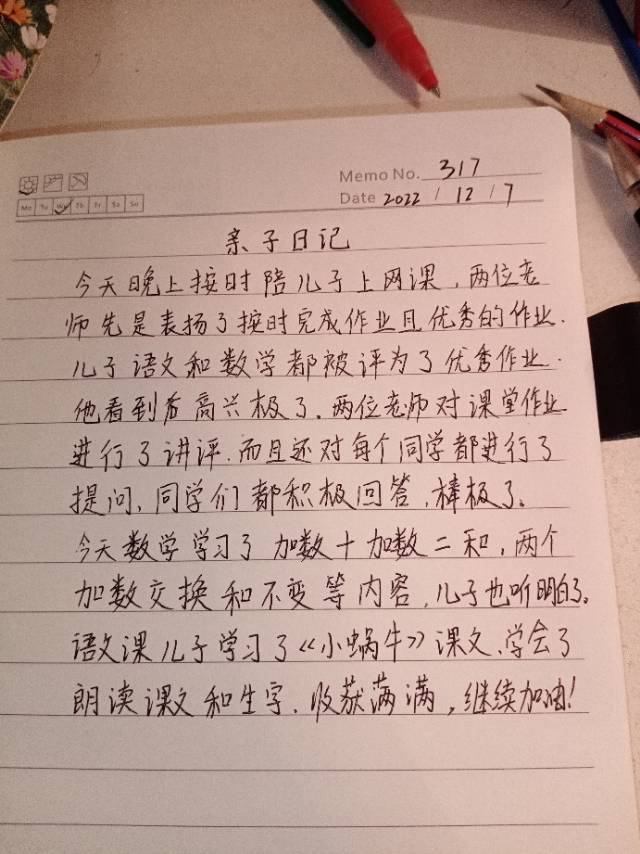 Memo No. 317
Mo Tu We Th Fr Sa Su
Date 2022 / 12 / 7
亲子日记
今天晚上按时陪儿子上网课，两位老
师先是表扬了按时完成作业且优秀的作业.
儿子语文和数学都被评为了优秀作业.
他看到后高兴极了.两位老师对课堂作业
进行了讲评.而且还对每个同学都进行了
提问,同学们都积极回答,棒极了。
今天数学学习了加数十加数二和,两个
加数交换和不变等内容,儿子也听明白了。
语文课儿子学习了《小蜗牛》课文、学会了
朗读课文和生字.收获满满,继续加油!